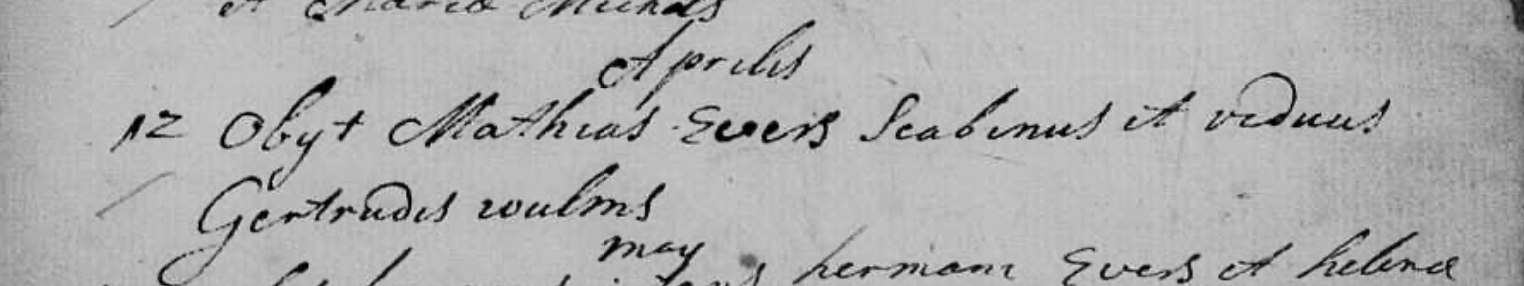 et Maria Michels
Aprilis
12 Obyt Mathias Evers Scabinus et viduus
Gertrudis wulms
may
hermani Evers et helena